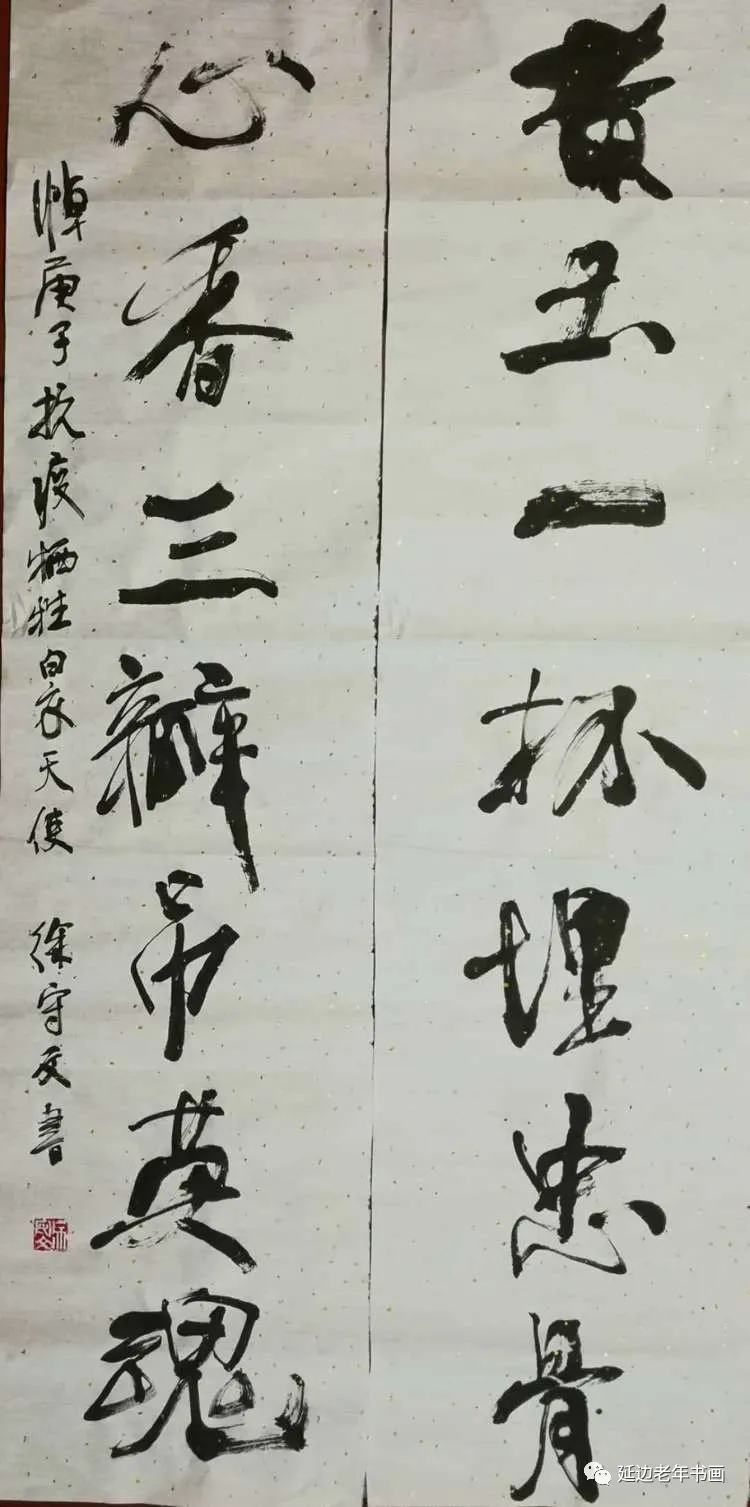 黄土一抔埋忠骨
心香三瓣吊英魂
悼庚子抗疫牺牲白衣天使 徐守文书
延边老年书画